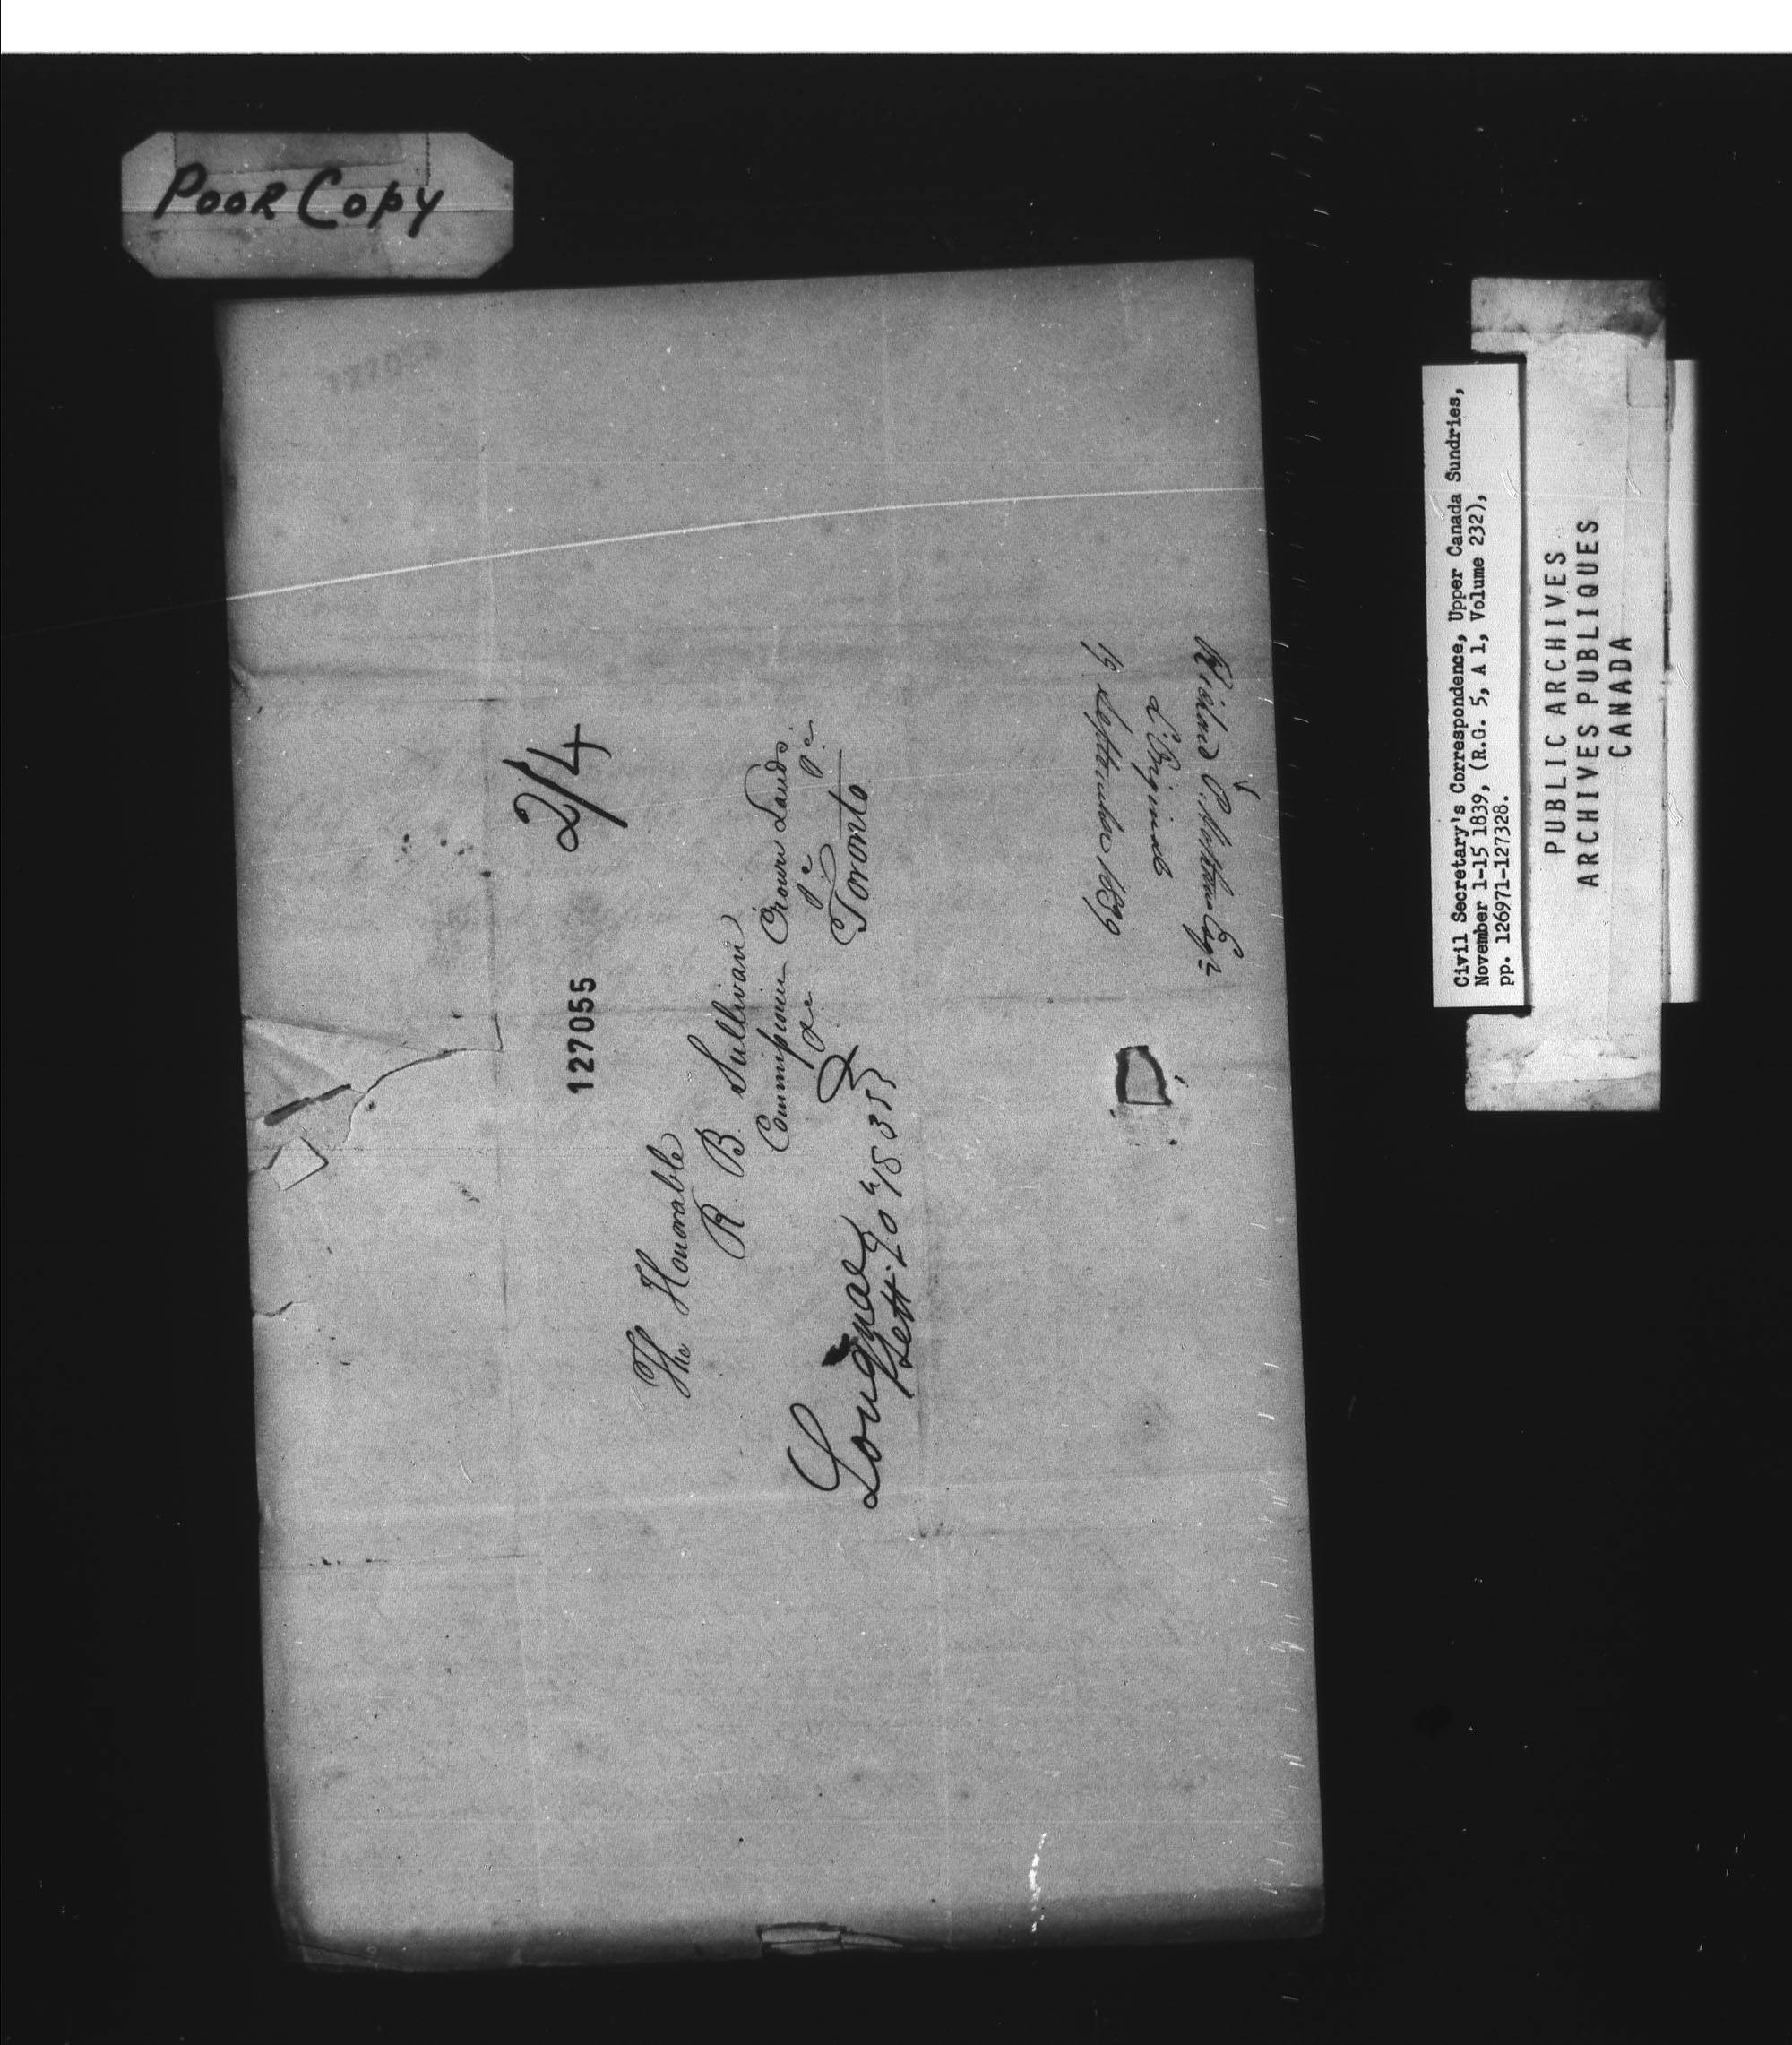 Poor Copy
2/4
127055
The Honorable
R. B. Sullivan
Commissioner Crown Lands
&c &c &c
Toronto
Longueil
Sept. 20th 1839
Richard P. Hotham Esqr
L'Orignal
19 September 1839
Civil Secretary's Correspondence, Upper Canada Sundries,
November 1-15 1839, (R.G. 5, A 1, Volume 232),
pp. 126971-127328.
PUBLIC ARCHIVES
ARCHIVES PUBLIQUES
CANADA